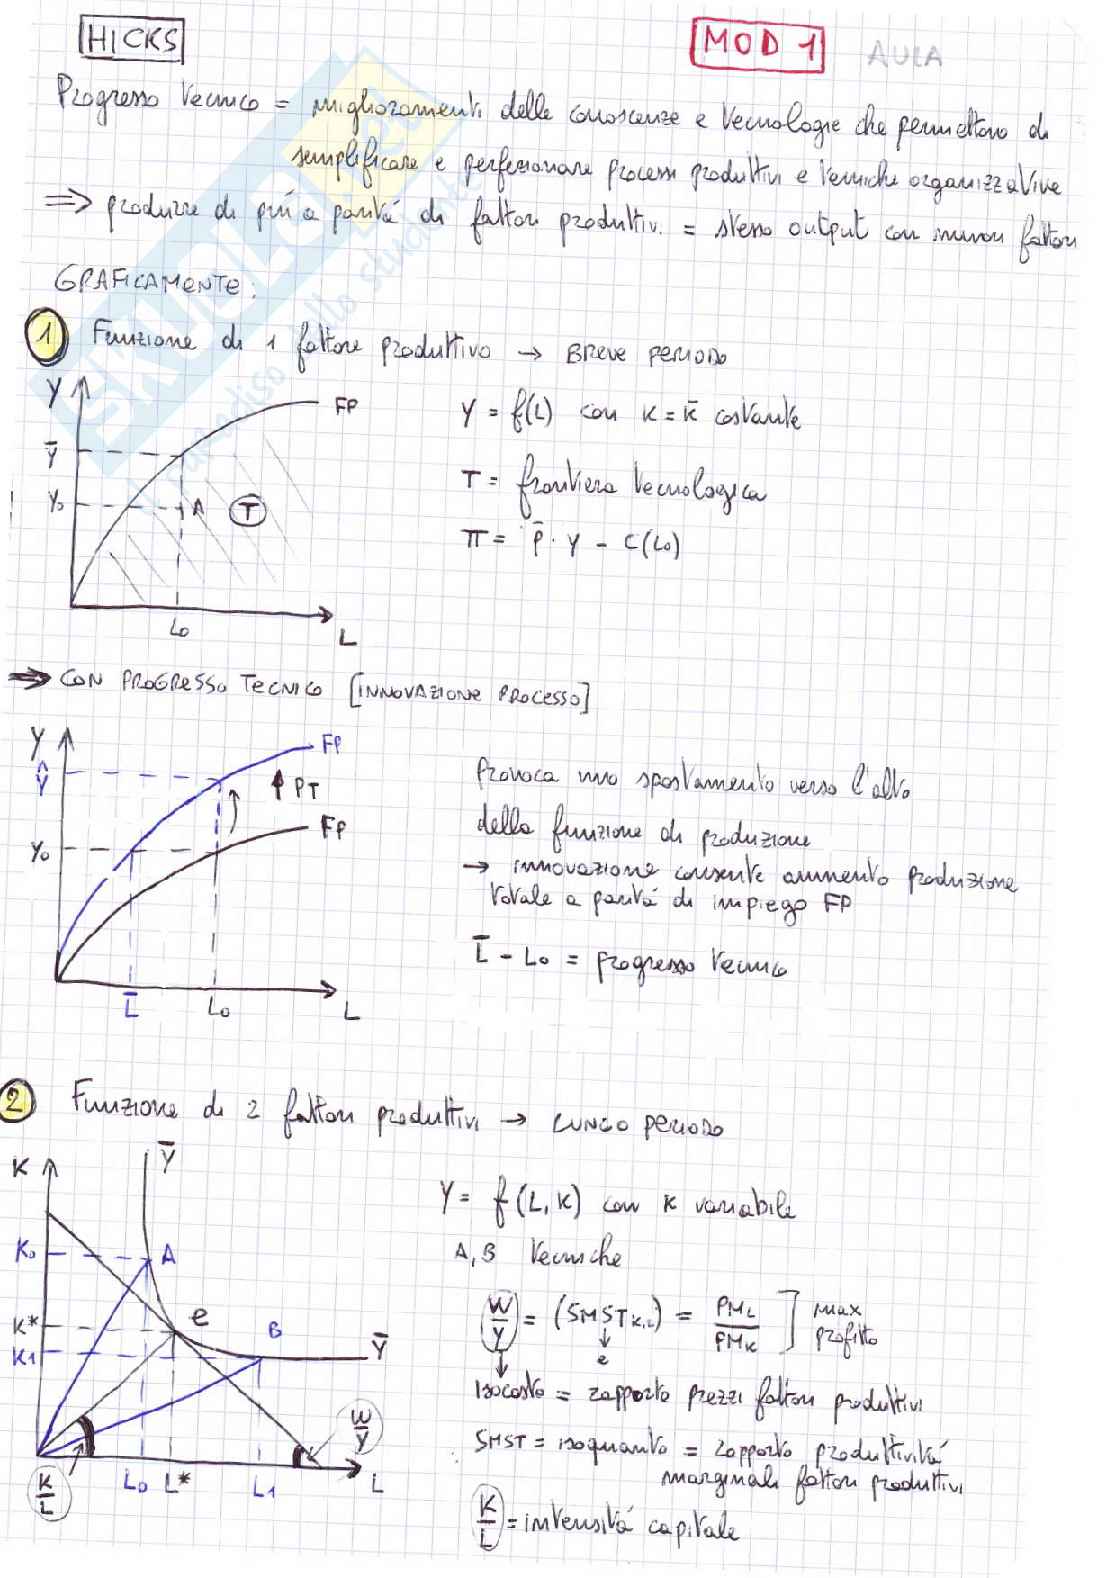 HICKS
MOD 1
AULA
Progresso tecnico = miglioramenti delle conoscenze e tecnologie che permettono di
semplificare e perfezionare processi produttivi e tecniche organizzative
⇒ produrre di più a parità di fattori produttivi = stesso output con minori fattori
GRAFICAMENTE:
1 Funzione di 1 fattore produttivo → BREVE PERIODO
Y
FP
Ȳ
Y₀
A
T
L₀
L
Y = f(L) con K = K̄ costante
T = frontiera tecnologica
π = P̄ · Y - C(L₀)
⇒ CON PROGRESSO TECNICO [INNOVAZIONE PROCESSO]
Y
FP
Ŷ
↑ PT
FP
Y₀
L̄
L₀
L
Provoca uno spostamento verso l'alto
della funzione di produzione
→ innovazione consente aumento produzione
totale a parità di impiego FP
L̄ - L₀ = progresso tecnico
2 Funzione di 2 fattori produttivi → LUNGO PERIODO
K
Ȳ
K₀
A
K*
e
B
K1
Ȳ
W/Y
K/L
L₀
L*
L1
L
Y = f(L, K) con K variabile
A, B tecniche
W/Y = (SMST K,L) = PML/PMK ] max profitto
↓ e
↓
Isocosto = rapporto prezzi fattori produttivi
SMST = isoquanto = rapporto produttività
marginali fattori produttivi
K/L = intensità capitale
SKUOLA.net
paradiso dello studente